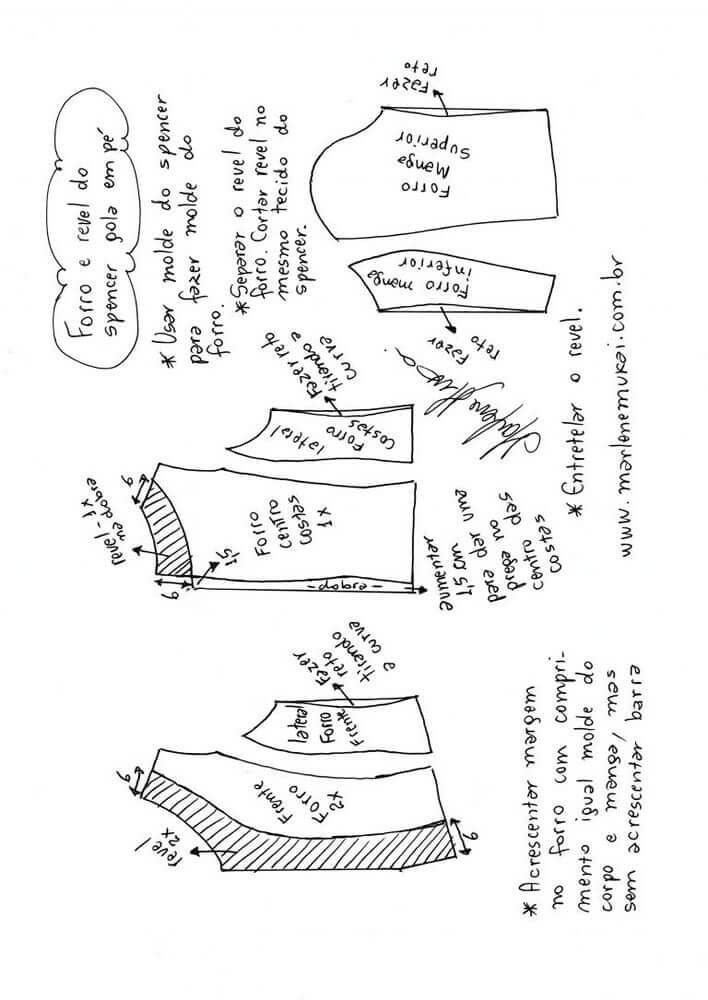 Forro e revel do
spencer gola em pé
* Usar molde do spencer
para fazer molde do
forro.
* Separar o revel do
forro. Cortar revel no
mesmo tecido do
spencer.
revel
2x
6
Frente
Forro
2x
6
lateral
Forro
Frente
Fazer
reto
tirando
a curva
revel - 1x
na dobra
6
6
1,5
Forro
centro
costas
1x
- dobra -
aumentar
1,5 cm
para dar uma
prega no
centro das
costas
lateral
Forro
Costas
Fazer reto
tirando a
curva
Forro manga
inferior
Fazer
reto
Forro
Manga
Superior
Fazer
reto
* Acrescentar margem
no forro com compri-
mento igual molde do
corpo e manga/mas
sem acrescentar barra
* Entretelar o revel.
www.marlenemukai.com.br